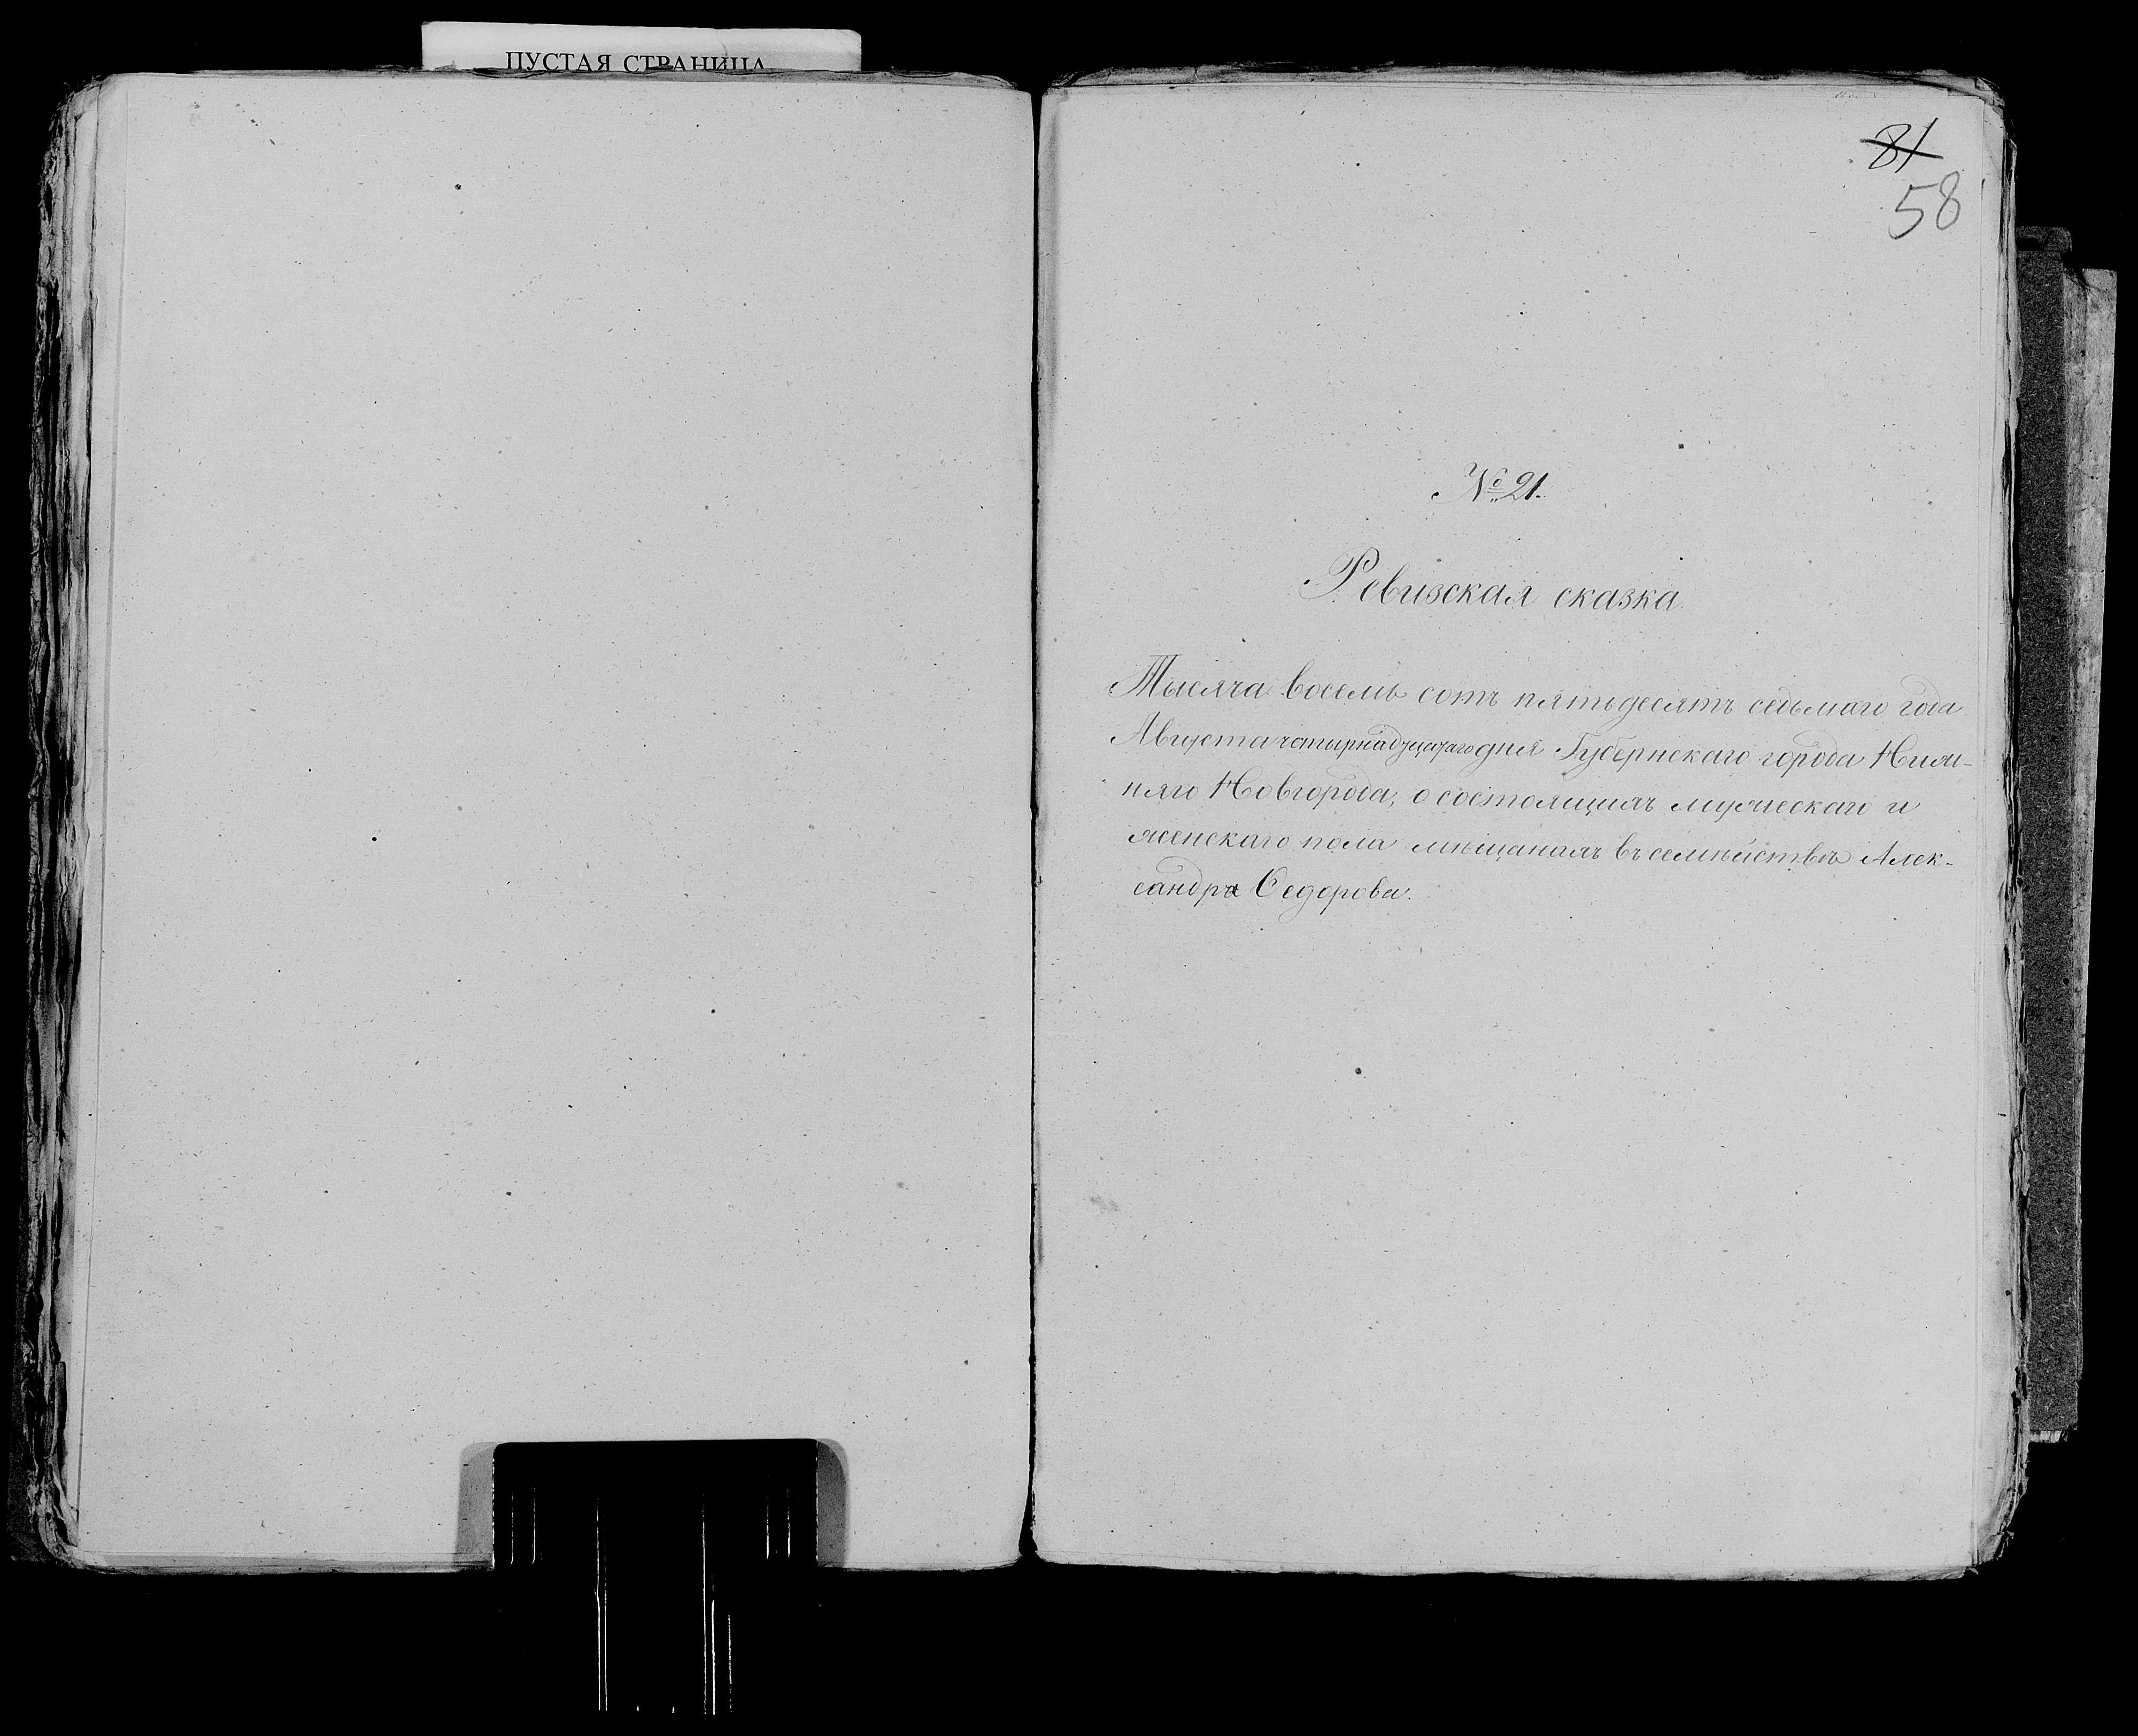 ПУСТАЯ СТРАНИЦА
81
58
№ 21.
Ревизская сказка
Тысяча восемь сотъ пятьдесятъ седьмаго года
Августа четырнадцатаго дня Губернскаго города Ниж-
няго Новгорода, о состоящихъ мужескаго и
женскаго пола мѣщанахъ въ семействѣ Алек-
сандра Седорова.